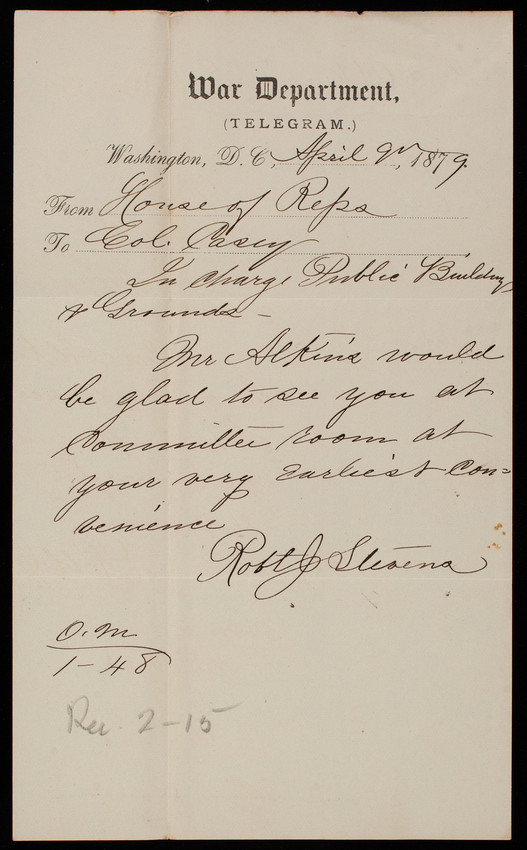 War Department,
(TELEGRAM.)
Washington, D. C., April 9th, 1879.
From House of Reps
To Col. Casey
In charge Public Buildings
& Grounds —
Mr Atkins would
be glad to see you at
Committee room at
your very Earliest Con=
venience
Robt J Stevens
O. M
1-48
Rec. 2-15